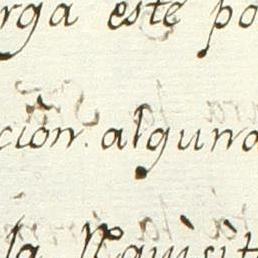 rga este po
ción. alguno
la Requisit